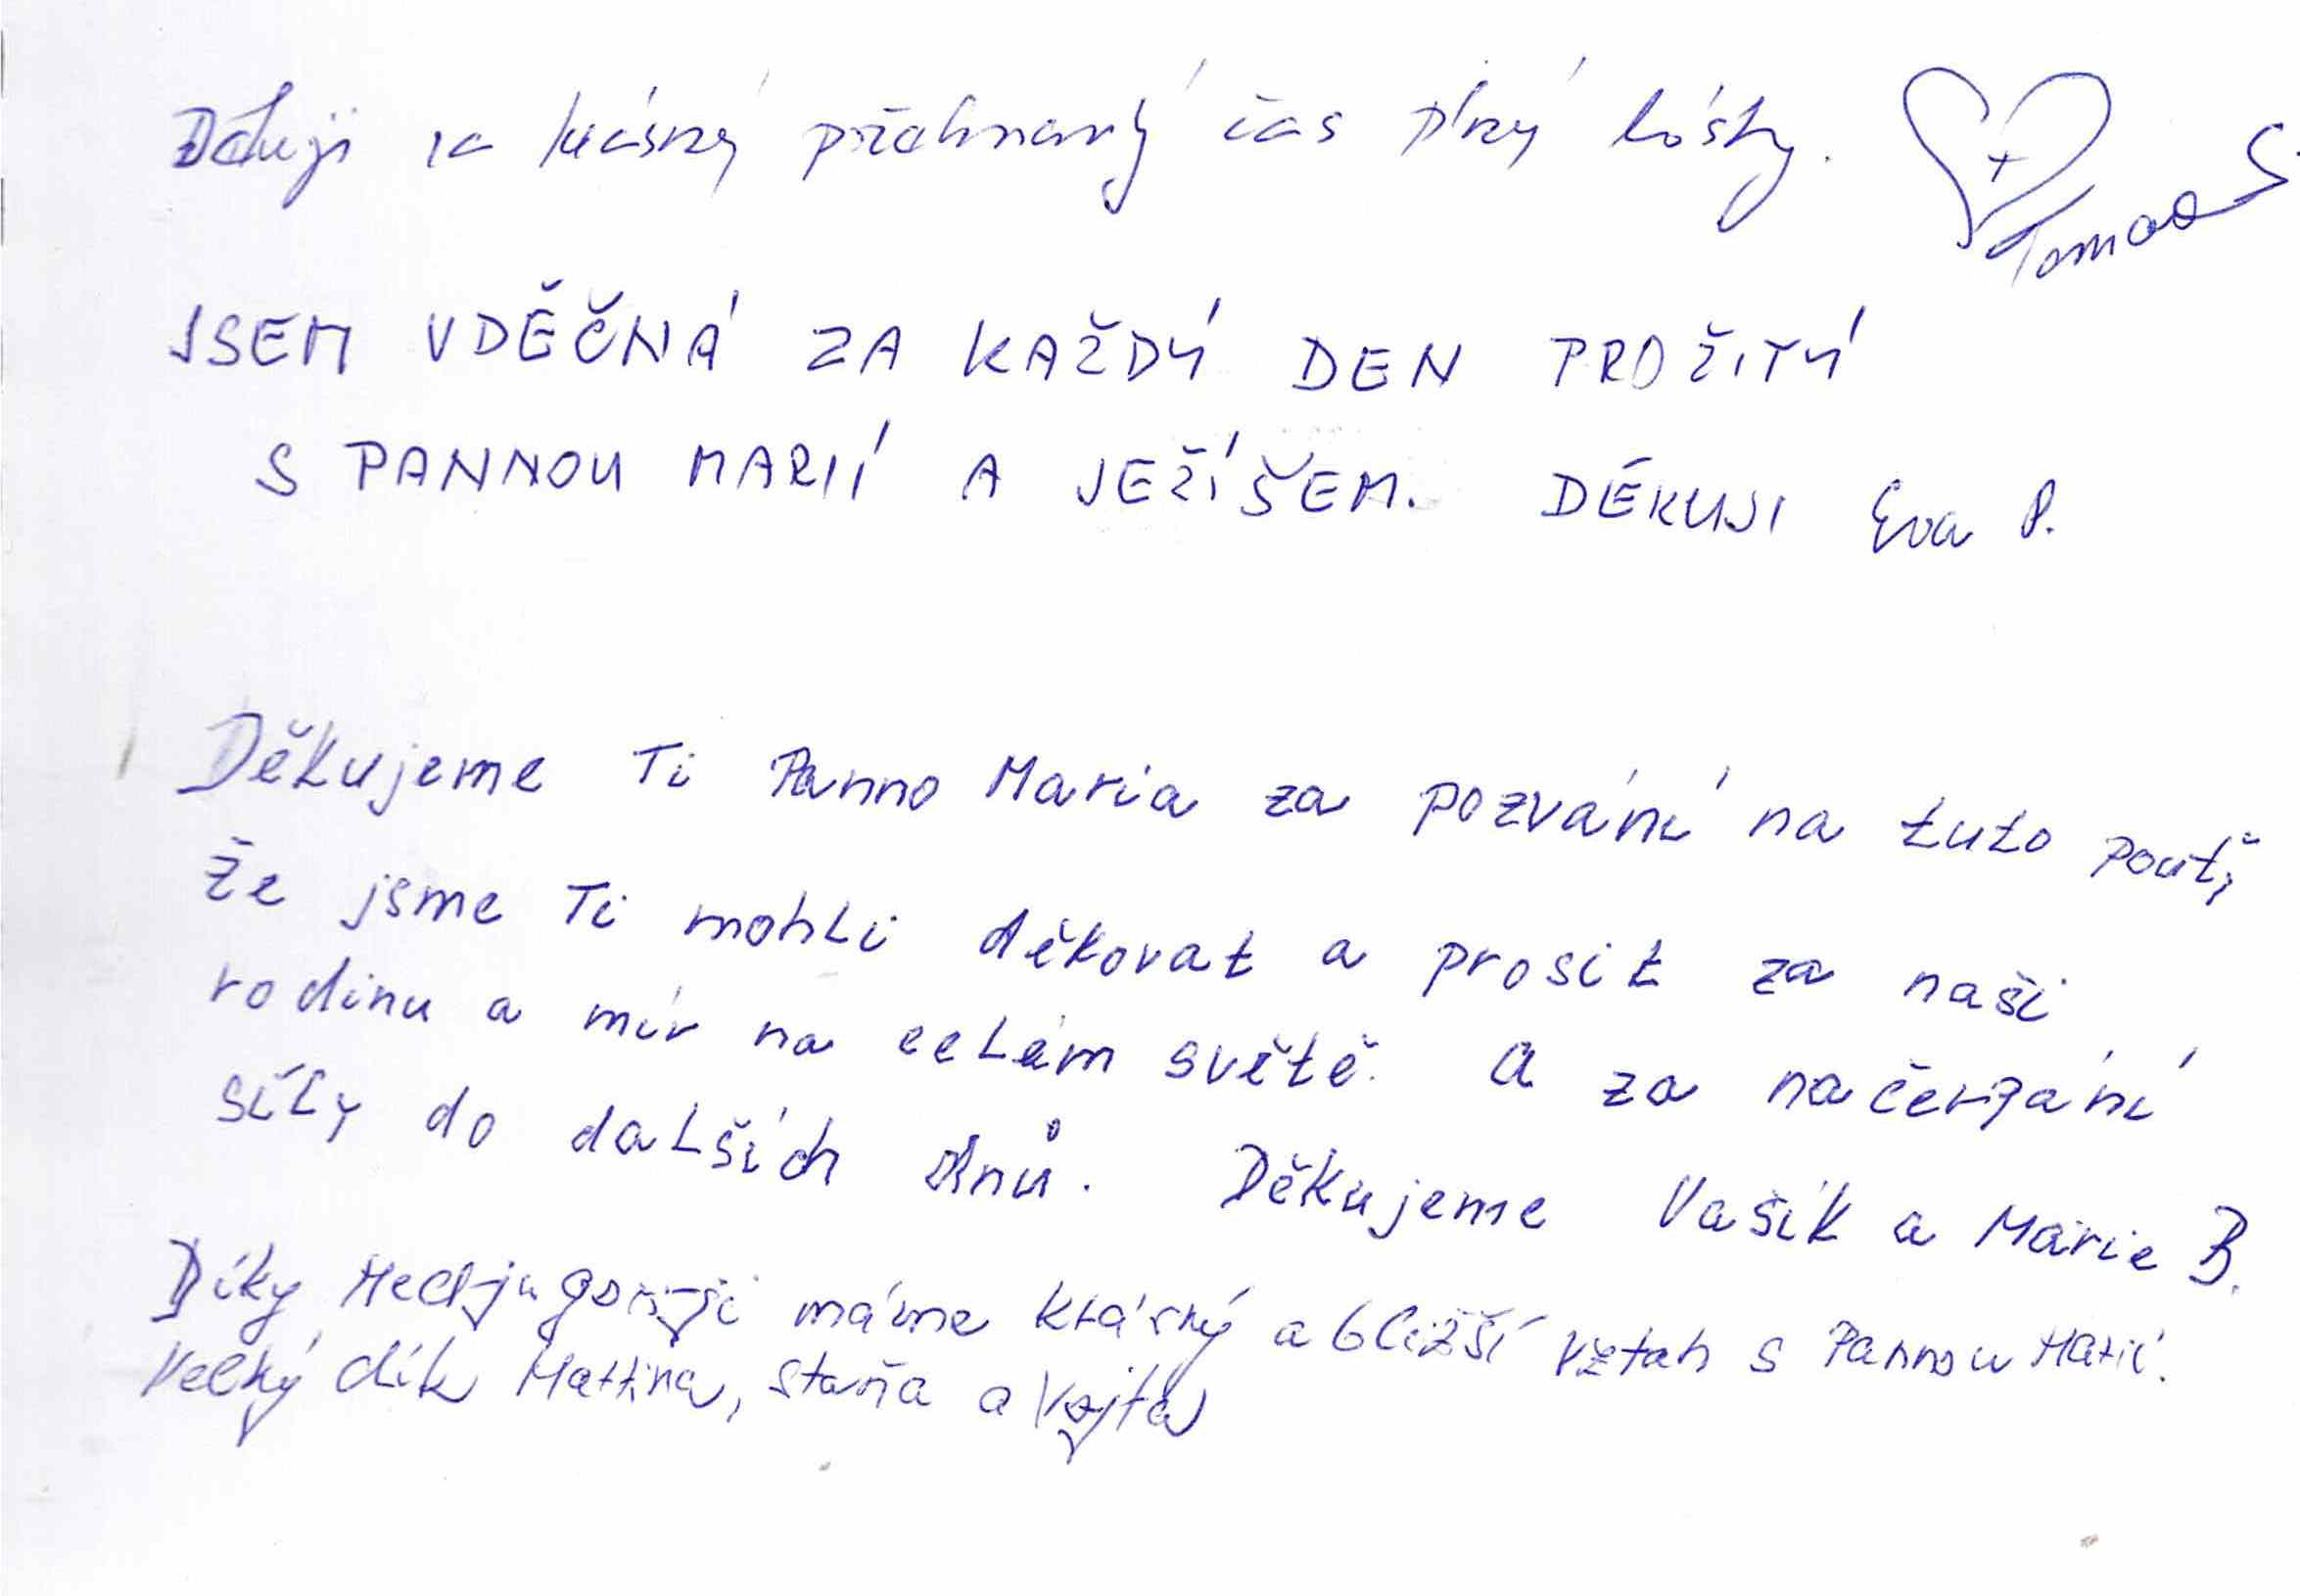 Děkuji za krásný požehnaný čas plný lásky. Tomáš
JSEM VDĚČNÁ ZA KAŽDÝ DEN PROŽITÝ
S PANNOU MARIÍ A JEŽÍŠEM. DĚKUJI Eva P.
Děkujeme Ti Panno Maria za pozvání na tuto pouť,
že jsme Ti mohli děkovat a prosit za naši
rodinu a mír na celém světě. A za načerpání
síly do dalších dnů. Děkujeme Vašík a Marie B.
Díky má­me krásný a bližší vztah s Pannou Marií.
Velký dík Martina, Staňa a Vojta